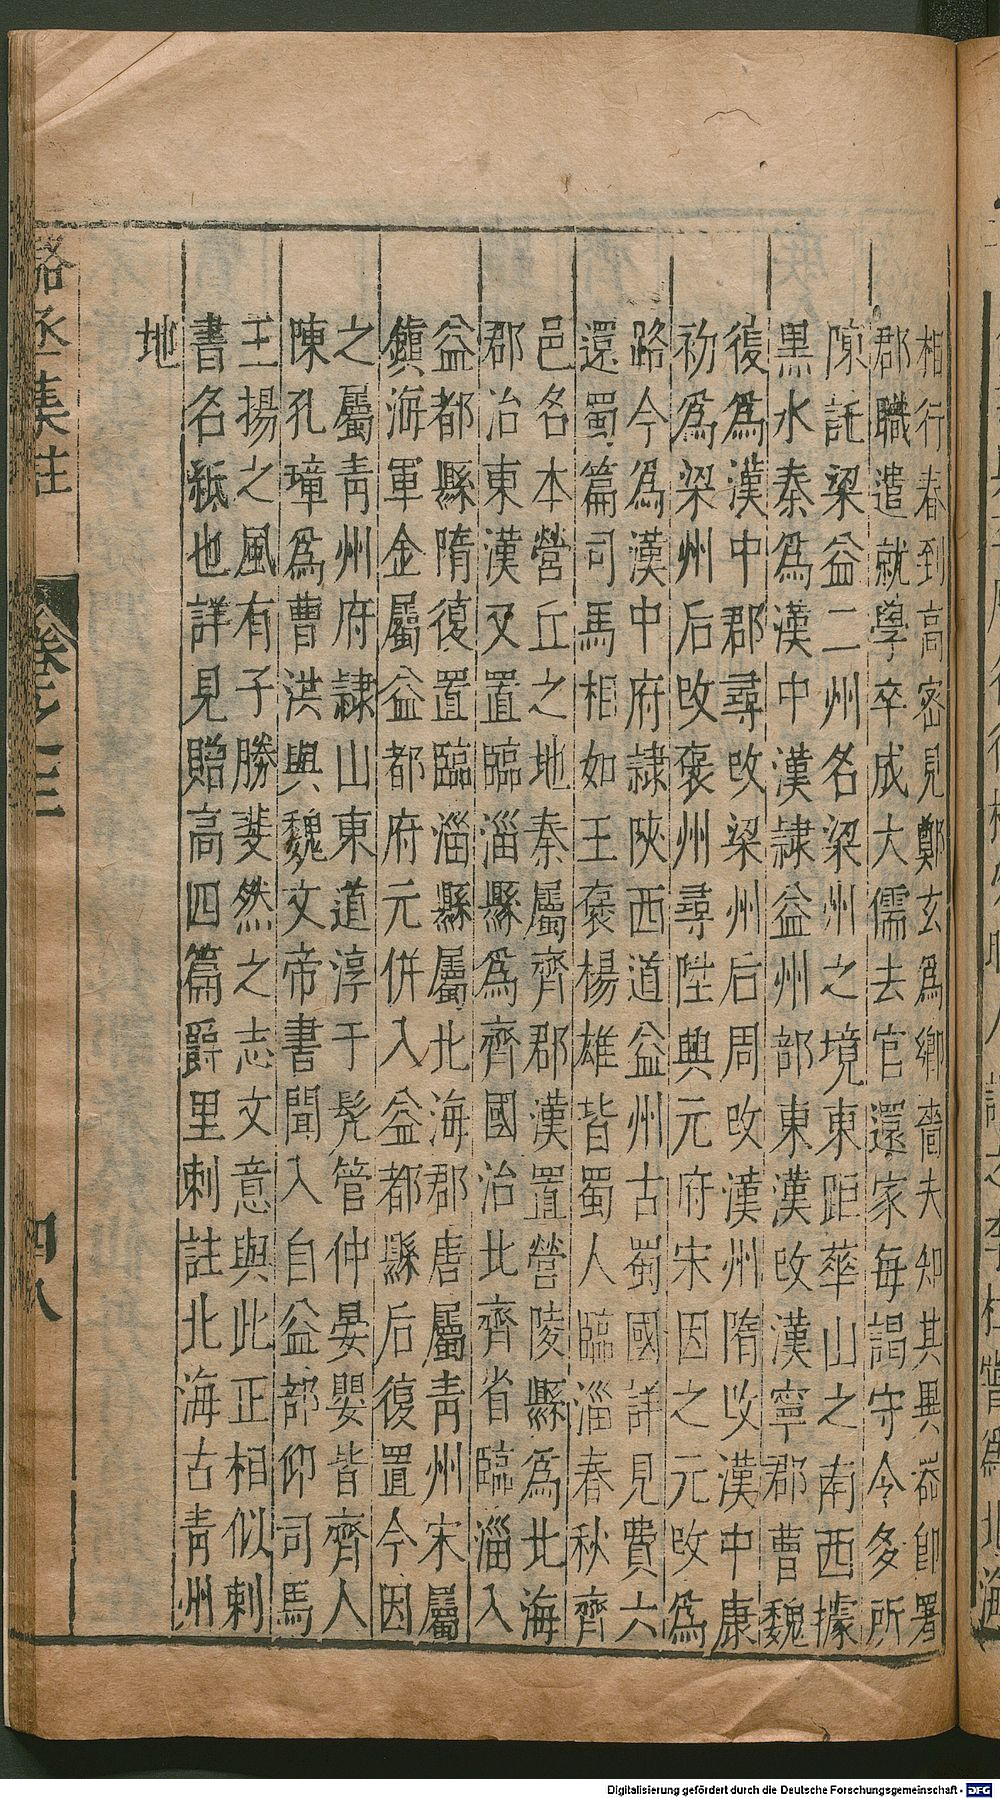 相行春到高密見鄭玄為鄉嗇夫知其異器卽署
郡職遣就學卒成大儒去官還家每謁守令多所
陳託梁益二州名梁州之境東距華山之南西據
黒水秦為漢中漢隷益州部東漢改漢寧郡曹魏
復為漢中郡尋改梁州后周改漢州隋改漢中康
初為梁州后改褒州尋陞興元府宋因之元改為
路今為漢中府隷陝西道益州古蜀國詳見費六
還蜀篇司馬相如王褒楊雄皆蜀人臨淄春秋齊
邑名本營丘之地秦屬齊郡漢置營陵縣為北海
郡治東漢又置臨淄縣為齊國治北齊省臨淄入
益都縣隋復置臨淄縣屬北海郡唐屬青州宋屬
鎮海軍金屬益都府元併入益都縣后復置今因
之屬青州府隷山東道淳于髡管仲晏嬰皆齊人
陳孔璋為曹洪與魏文帝書聞入自益部仰司馬
王揚之風有子勝斐然之志文意與此正相似刺
書名紙也詳見贈高四篇爵里刺註北海古青州
地
駱丞集註
卷之三
四八
Digitalisierung gefördert durch die Deutsche Forschungsgemeinschaft - DFG